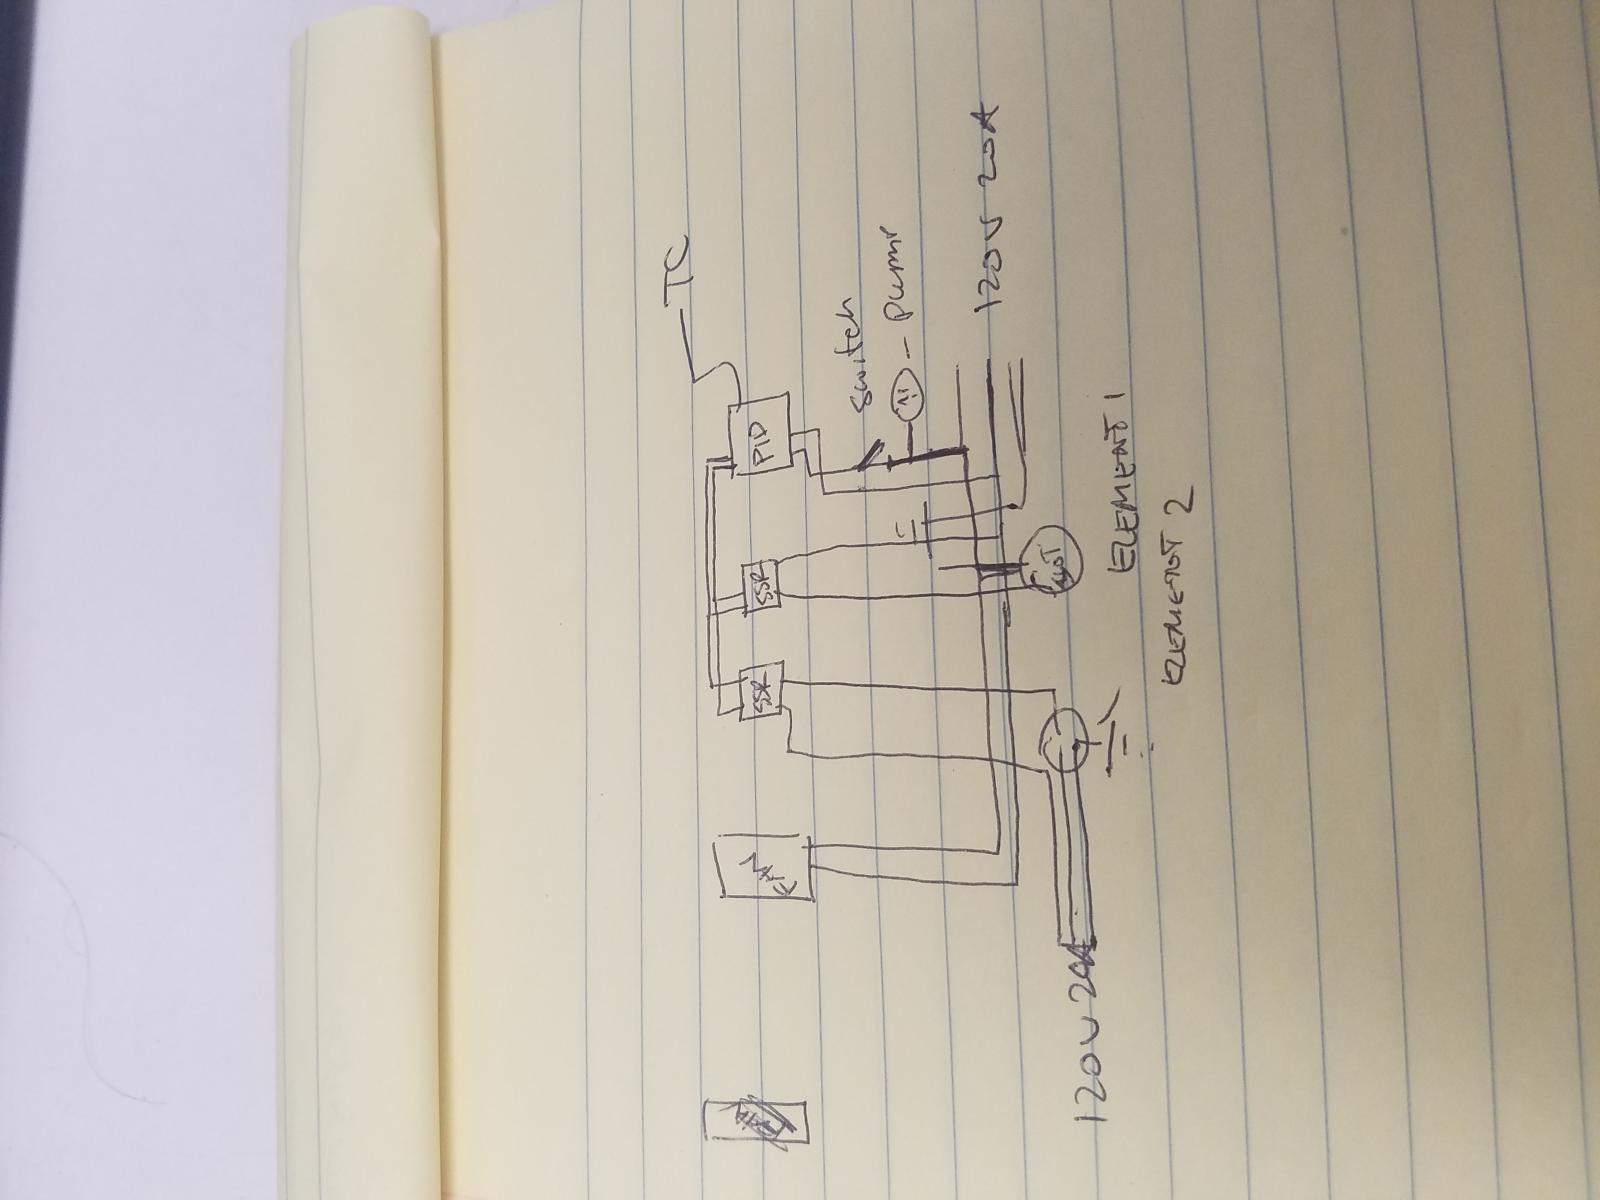 TC
PID
Switch
PUMP
120V 20A
SSR
SSR
ELEMENT 1
ELEMENT 2
120V 20A